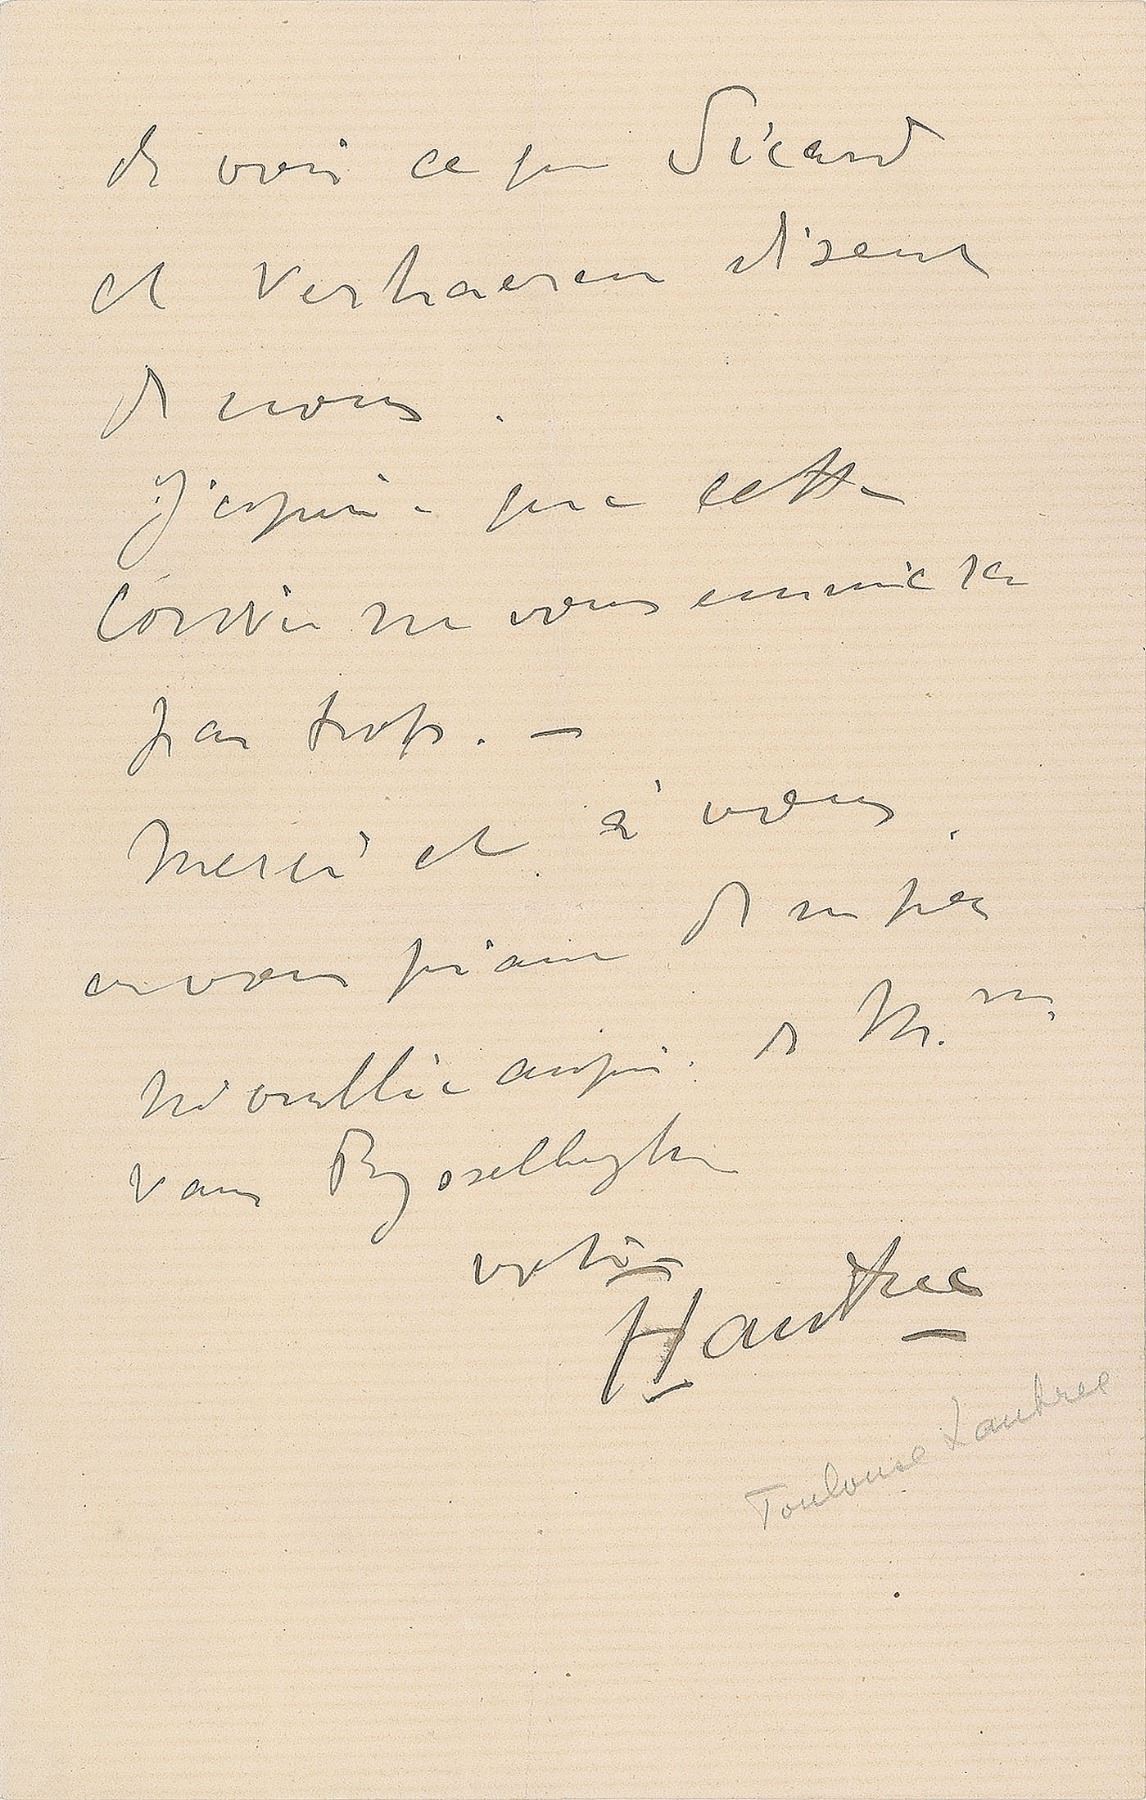 de voir ce que Sicard
et Verhaeren disent
de nous.
J'espère que cette
Corvée ne vous ennuiera
pas trop. —
Merci et à vous
en vous priant de ne pas
m'oublier auprès de Mme
van Rysselberghe
votre
HLautrec
Toulouse Lautrec